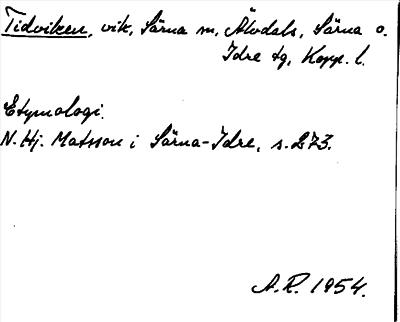 Tidviken, vik, Särna sn, Älvdals, Särna o.
Idre tg, Kopp. l.
Etymologi.
N. Hj. Matsson i Särna-Idre, s. 273.
A.R. 1954.